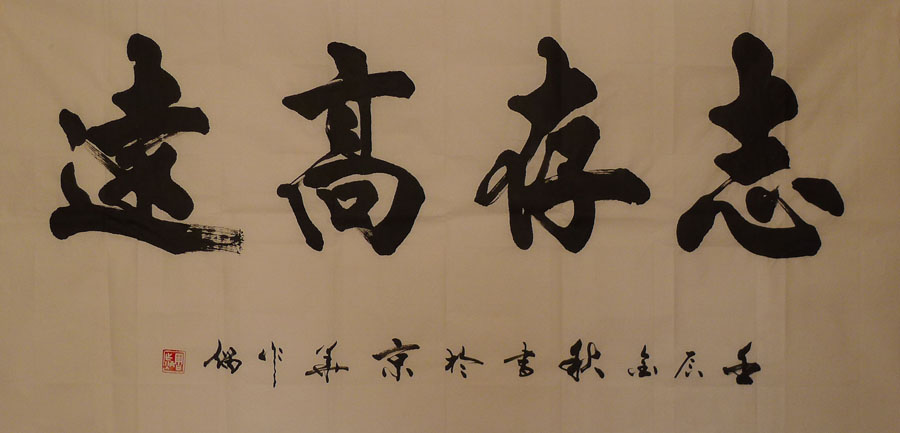 志存高遠
壬辰金秋書於京華作偶